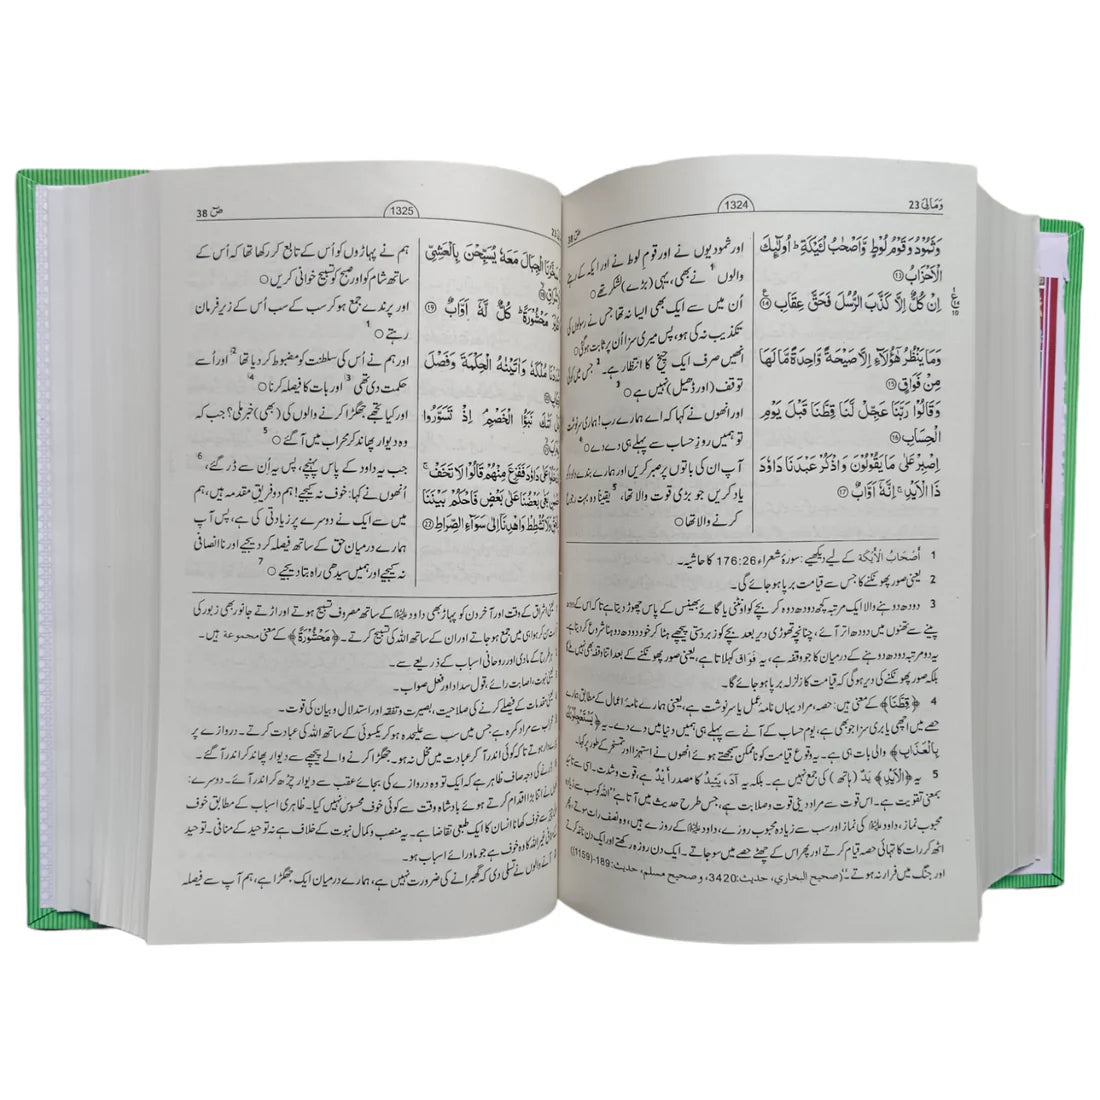 وَمَالِیَ 23
1324
صٓ 38
وَثَمُوْدُ وَقَوْمُ لُوْطٍ وَّاَصْحٰبُ لْـَٔیْكَةِ ؕ اُولٰٓىِٕكَ
الْاَحْزَابُ ⑬
اِنْ كُلٌّ اِلَّا كَذَّبَ الرُّسُلَ فَحَقَّ عِقَابِ ⑭
وَمَا یَنْظُرُ هٰۤؤُلَآءِ اِلَّا صَیْحَةً وَّاحِدَةً مَّا لَهَا
مِنْ فَوَاقٍ ⑮
وَقَالُوْا رَبَّنَا عَجِّلْ لَّنَا قِطَّنَا قَبْلَ یَوْمِ
الْحِسَابِ ⑯
اِصْبِرْ عَلٰی مَا یَقُوْلُوْنَ وَاذْكُرْ عَبْدَنَا دَاوٗدَ
ذَا الْاَیْدِ ۚ اِنَّهٗۤ اَوَّابٌ ⑰
اور ثمودیوں نے اور قومِ لوط نے اور ایکہ کے رہنے
والوں 1 نے بھی، یہی (بڑے) لشکر تھے ○
اُن میں سے ایک بھی ایسا نہ تھا جس نے رسولوں کی
تکذیب نہ کی ہو، پس میری سزا اُن پر ثابت ہوگئی ○
انھیں صرف ایک چیخ کا انتظار ہے 2 جس میں کوئی
توقف (اور ڈھیل) نہیں ہے 3 ○
اور انھوں نے کہا کہ اے ہمارے رب! ہماری سرنوشت
تو ہمیں روزِ حساب سے پہلے ہی دے دے 4 ○
آپ ان کی باتوں پر صبر کریں اور ہمارے بندے داود کو
یاد کریں جو بڑی قوت والا تھا، 5 یقیناً وہ بہت رجوع
کرنے والا تھا ○
1 اَصْحَابُ الْاَیْكَة کے لیے دیکھیے: سورۂ شعراء 176:26 کا حاشیہ۔
2 یعنی صور پھونکنے کا جس سے قیامت برپا ہو جائے گی۔
3 دودھ دوہنے والا ایک مرتبہ کچھ دودھ دوہ کر بچے کو اونٹنی یا گائے بھینس کے پاس چھوڑ دیتا ہے تاکہ اس کے دودھ
پینے سے تھنوں میں دودھ اتر آئے، چنانچہ تھوڑی دیر بعد بچے کو زبردستی پیچھے ہٹا کر خود دودھ دوہنا شروع کر دیتا ہے۔
یہ دو مرتبہ دودھ دوہنے کے درمیان کا جو وقفہ ہے، یہ فَوَاق کہلاتا ہے، یعنی صور پھونکنے کے بعد اتنا وقفہ بھی نہیں ملے گا
بلکہ صور پھونکنے کی دیر ہوگی کہ قیامت کا زلزلہ برپا ہو جائے گا۔
4 ﴿قِطَّنَا﴾ کے معنی ہیں: حصہ، مراد یہاں نامۂ عمل یا سرنوشت ہے، یعنی ہمارے نامۂ اعمال کے مطابق ہمارے
حصے میں اچھی یا بری سزا جو بھی ہے، یوم حساب کے آنے سے پہلے ہی ہمیں دنیا میں دے دے۔ یہ ﴿یَسْتَعْجِلُوْنَكَ
بِالْعَذَابِ﴾ والی بات ہی ہے۔ یہ وقوع قیامت کو ناممکن سمجھتے ہوئے انھوں نے استہزا اور تمسخر کے طور پر کہا۔
5 یہ ﴿الْاَیْدِ﴾ یَدٌ (ہاتھ) کی جمع نہیں ہے۔ بلکہ یہ آدَ، یَئِیدُ کا مصدر اَیْدٌ ہے، قوت و شدت۔ اسی سے تائید
بمعنی تقویت ہے۔ اس قوت سے مراد دینی قوت و صلابت ہے، جس طرح حدیث میں آتا ہے ”اللہ کو سب سے زیادہ
محبوب نماز، داود علیہ السلام کی نماز اور سب سے زیادہ محبوب روزے، داود علیہ السلام کے روزے ہیں، وہ نصف رات سوتے، پھر
اٹھ کر رات کا تہائی حصہ قیام کرتے اور پھر اس کے چھٹے حصے میں سو جاتے۔ ایک دن روزہ رکھتے اور ایک دن ناغہ کرتے
اور جنگ میں فرار نہ ہوتے۔“ (صحیح البخاري، حدیث: 3420، و صحیح مسلم، حدیث: 189-(1159))
1325
صٓ 38
سَخَّرْنَا الْجِبَالَ مَعَهٗ یُسَبِّحْنَ بِالْعَشِیِّ
⑱
مَحْشُوْرَةً ؕ كُلٌّ لَّهٗۤ اَوَّابٌ ⑲
مُلْكَهٗ وَاٰتَیْنٰهُ الْحِكْمَةَ وَفَصْلَ
اَتٰىكَ نَبَؤُا الْخَصْمِ ۘ اِذْ تَسَوَّرُوا
عَلٰی دَاوٗدَ فَفَزِعَ مِنْهُمْ قَالُوْا لَا تَخَفْ ۚ
بَغٰی بَعْضُنَا عَلٰی بَعْضٍ فَاحْكُمْ بَیْنَنَا
وَلَا تُشْطِطْ وَاهْدِنَاۤ اِلٰی سَوَآءِ الصِّرَاطِ ㉒
ہم نے پہاڑوں کو اُس کے تابع کر رکھا تھا کہ اُس کے
ساتھ شام کو اور صبح کو تسبیح خوانی کریں ○
اور پرندے جمع ہو کر سب کے سب اُس کے زیر فرمان
رہتے 1 ○
اور ہم نے اُس کی سلطنت کو مضبوط کر دیا تھا 2 اور اُسے
حکمت دی تھی 3 اور بات کا فیصلہ کرنا 4 ○
اور کیا تجھے جھگڑا کرنے والوں کی (بھی) خبر ملی؟ جب کہ
وہ دیوار پھاند کر محراب میں آ گئے 5 ○
جب یہ داود کے پاس پہنچے، پس یہ اُن سے ڈر گئے، 6
اُنھوں نے کہا: خوف نہ کیجیے! ہم دو فریق مقدمہ ہیں، ہم
میں سے ایک نے دوسرے پر زیادتی کی ہے، پس آپ
ہمارے درمیان حق کے ساتھ فیصلہ کر دیجیے اور نا انصافی
نہ کیجیے اور ہمیں سیدھی راہ بتا دیجیے 7 ○
اشراق کے وقت اور آخر دن کو پہاڑ بھی داود علیہ السلام کے ساتھ مصروف تسبیح ہوتے اور اڑتے جانور بھی زبور کی
سن کر ہوا ہی میں جمع ہو جاتے اور ان کے ساتھ اللہ کی تسبیح کرتے۔ ﴿مَحْشُوْرَةً﴾ کے معنی مجموعۃ ہیں۔
ہر طرح کے مادی اور روحانی اسباب کے ذریعے سے۔
نبوت، اصابت رائے، قول سداد اور فعل صواب۔
مقدمات کے فیصلے کرنے کی صلاحیت، بصیرت و تفقہ اور استدلال و بیان کی قوت۔
سے مراد کمرہ ہے، جس میں سب سے علیحدہ ہو کر یکسوئی کے ساتھ اللہ کی عبادت کرتے۔ دروازے پر
ہوتے تاکہ کوئی اندر آ کر عبادت میں مخل نہ ہو۔ جھگڑا کرنے والے پیچھے سے دیوار پھاند کر اندر آ گئے۔
کی وجہ صاف ظاہر ہے کہ ایک تو وہ دروازے کی بجائے عقب سے دیوار چڑھ کر اندر آئے۔ دوسرے:
اتنا بڑا اقدام کرتے ہوئے بادشاہ وقت سے کوئی خوف محسوس نہیں کیا۔ ظاہری اسباب کے مطابق خوف
خوف کھانا انسان کا ایک طبعی تقاضا ہے۔ یہ منصب و کمال نبوت کے خلاف ہے نہ توحید کے منافی۔ توحید
غیر اللہ کا وہ خوف ہے جو ماورائے اسباب ہو۔
آنے والوں نے تسلی دی کہ گھبرانے کی ضرورت نہیں ہے، ہمارے درمیان ایک جھگڑا ہے، ہم آپ سے فیصلہ